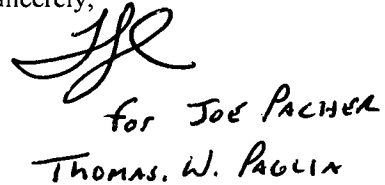 incerely,
for JOE PACHER
THOMAS. W. PAGLIA